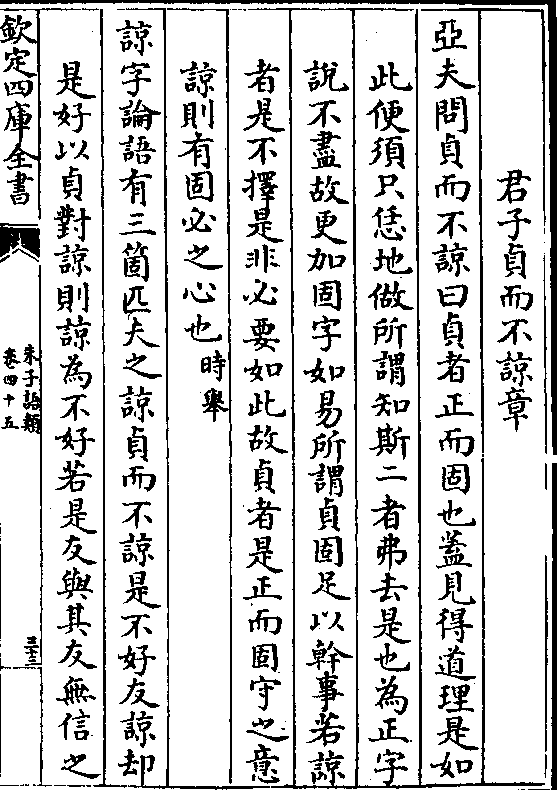 君子貞而不諒章
亞夫問貞而不諒曰貞者正而固也蓋見得道理是如
此便須只恁地做所謂知斯二者弗去是也為正字
說不盡故更加固字如易所謂貞固足以幹事若諒
者是不擇是非必要如此故貞者是正而固守之意
諒則有固必之心也時舉
諒字論語有三箇匹夫之諒貞而不諒是不好友諒却
是好以貞對諒則諒為不好若是友與其友無信之
欽定四庫全書
朱子語類
卷四十五
三十三